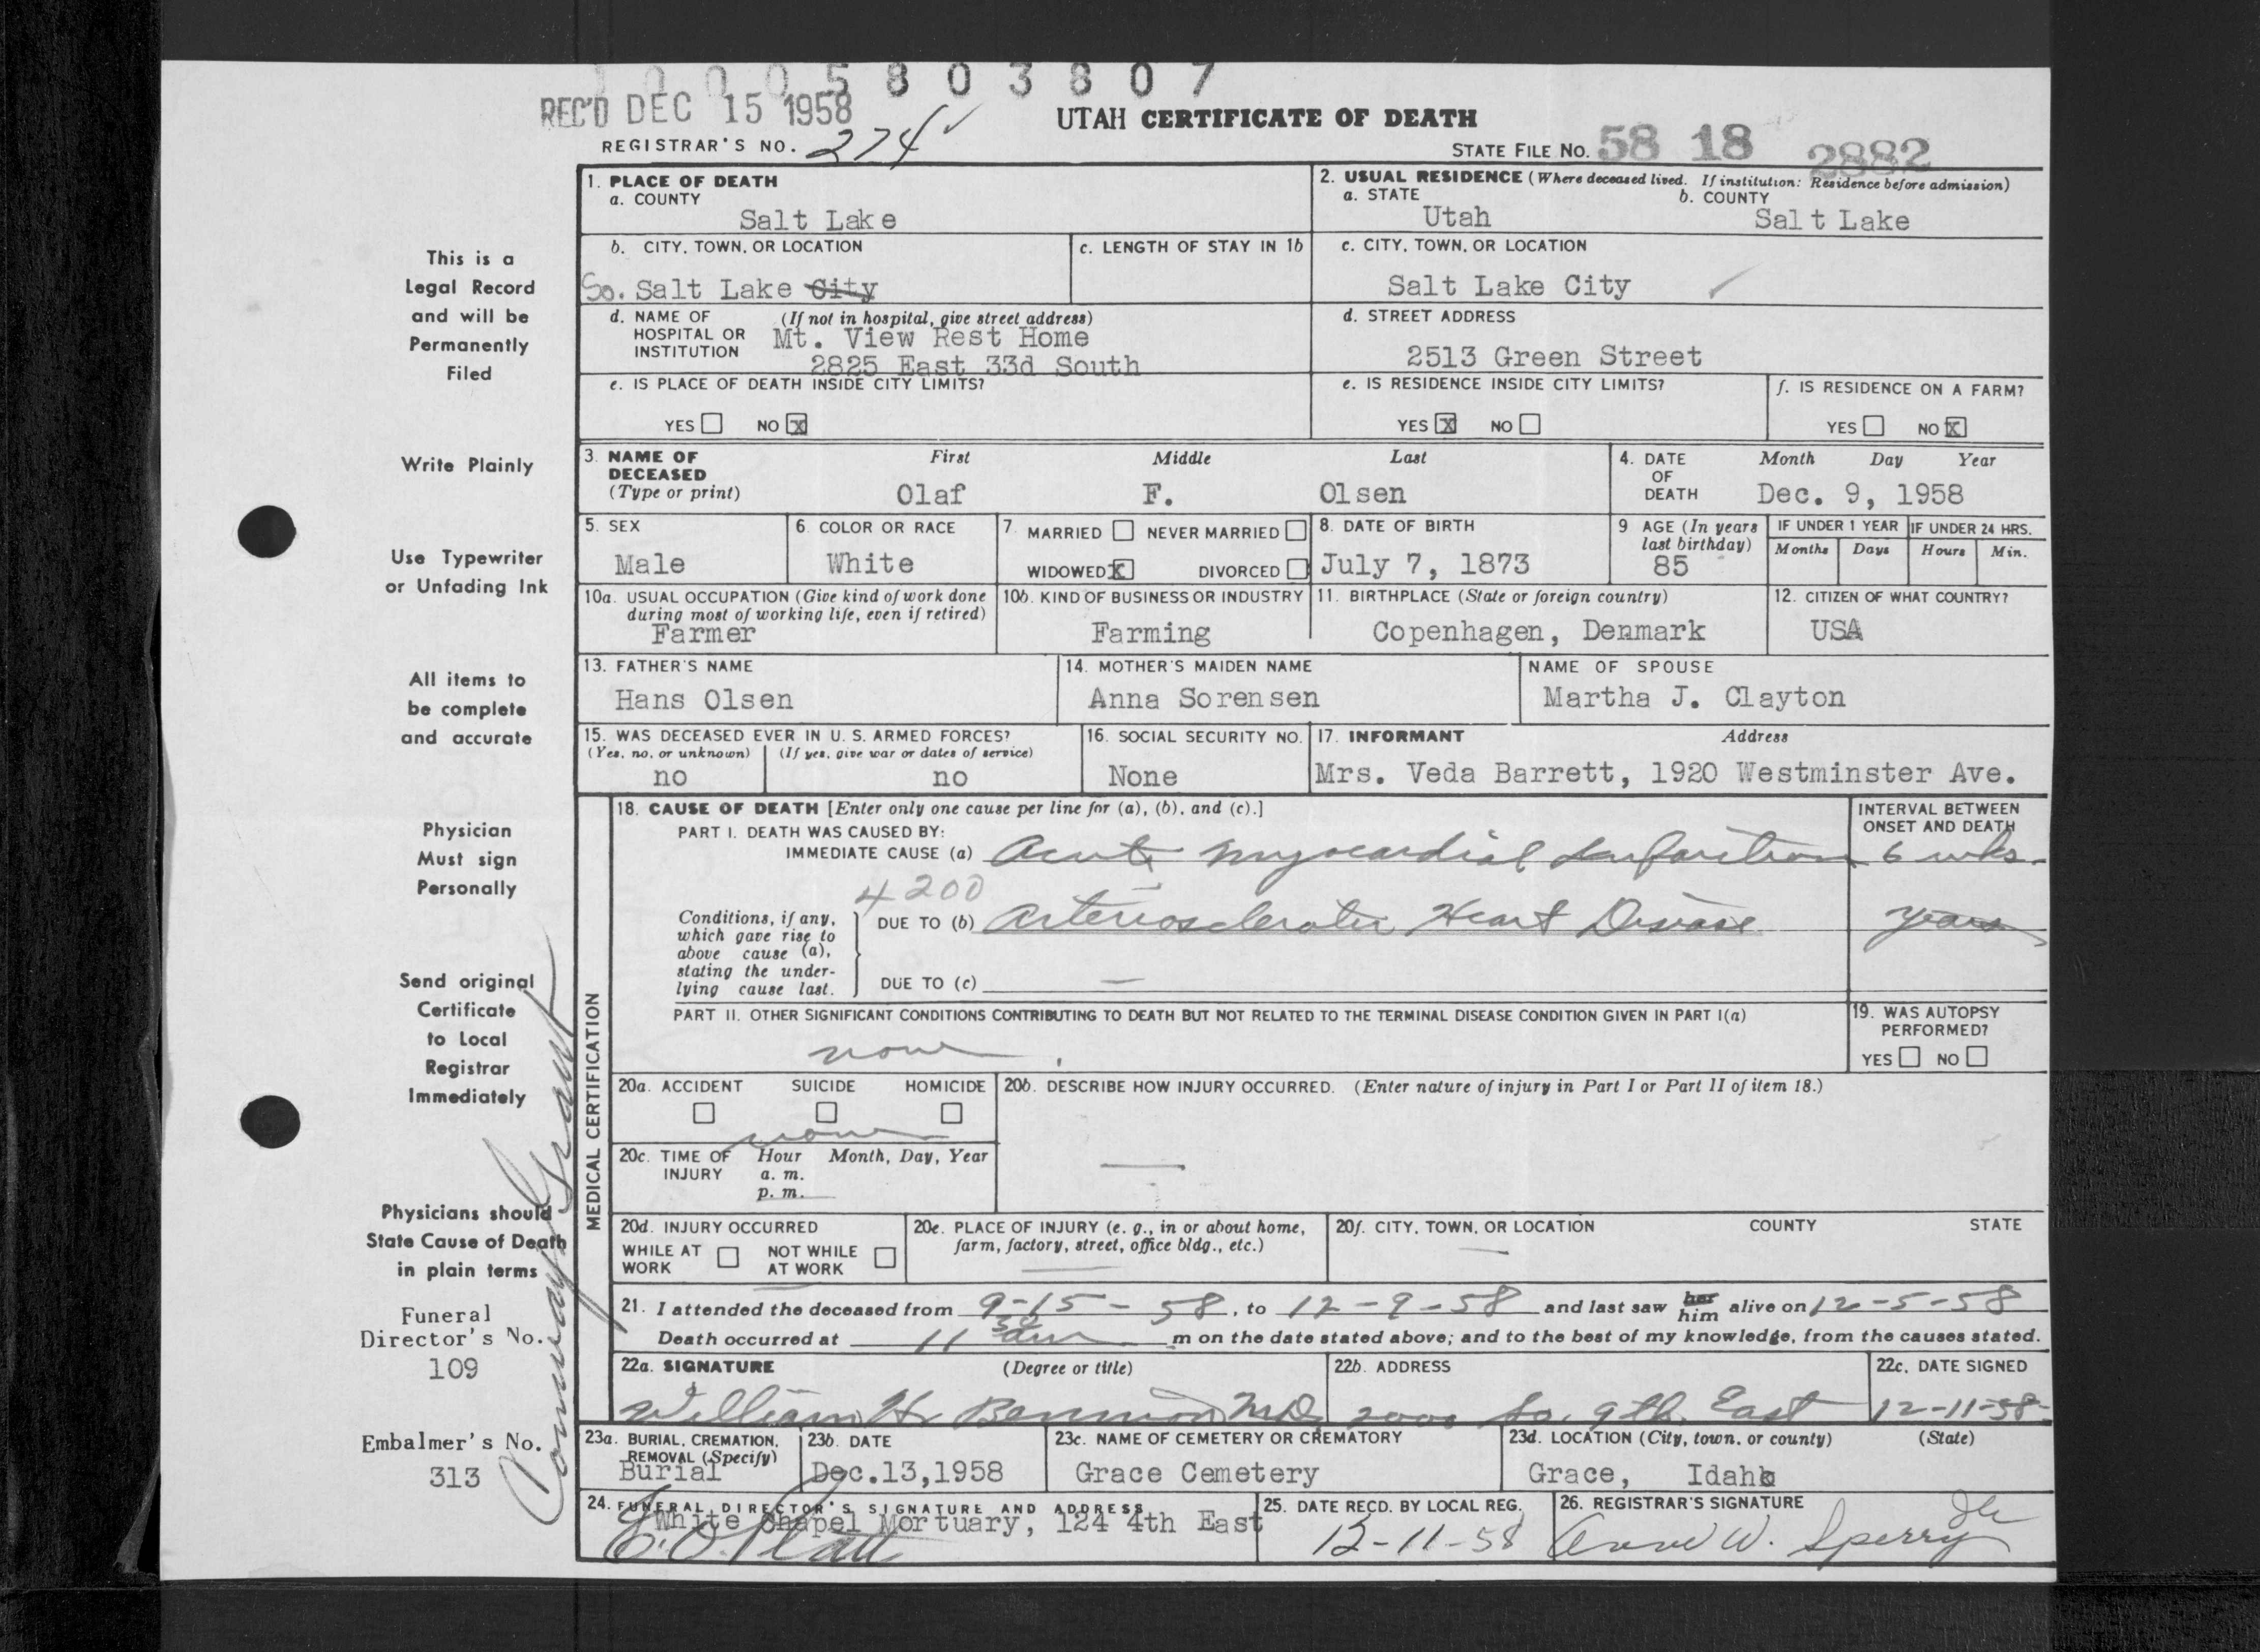 1 0 0 0 5 8 0 3 8 0 7
REC'D DEC 15 1958
UTAH CERTIFICATE OF DEATH
REGISTRAR'S NO. 274
STATE FILE NO. 58 18 2882
1. PLACE OF DEATH
a. COUNTY
Salt Lake
2. USUAL RESIDENCE (Where deceased lived. If institution: Residence before admission)
a. STATE b. COUNTY
Utah Salt Lake
b. CITY, TOWN, OR LOCATION
So. Salt Lake City
c. LENGTH OF STAY IN 1b
c. CITY, TOWN, OR LOCATION
Salt Lake City
d. NAME OF (If not in hospital, give street address)
HOSPITAL OR Mt. View Rest Home
INSTITUTION 2825 East 33d South
d. STREET ADDRESS
2513 Green Street
e. IS PLACE OF DEATH INSIDE CITY LIMITS?
YES NO X
e. IS RESIDENCE INSIDE CITY LIMITS?
YES X NO
f. IS RESIDENCE ON A FARM?
YES NO X
3. NAME OF DECEASED First Middle Last
(Type or print) Olaf F. Olsen
4. DATE OF DEATH Month Day Year
Dec. 9, 1958
5. SEX
Male
6. COLOR OR RACE
White
7. MARRIED NEVER MARRIED
WIDOWED X DIVORCED
8. DATE OF BIRTH
July 7, 1873
9 AGE (In years last birthday)
85
IF UNDER 1 YEAR IF UNDER 24 HRS.
Months Days Hours Min.
10a. USUAL OCCUPATION (Give kind of work done
during most of working life, even if retired)
Farmer
10b. KIND OF BUSINESS OR INDUSTRY
Farming
11. BIRTHPLACE (State or foreign country)
Copenhagen, Denmark
12. CITIZEN OF WHAT COUNTRY?
USA
13. FATHER'S NAME
Hans Olsen
14. MOTHER'S MAIDEN NAME
Anna Sorensen
NAME OF SPOUSE
Martha J. Clayton
15. WAS DECEASED EVER IN U. S. ARMED FORCES?
(Yes, no, or unknown) (If yes, give war or dates of service)
no no
16. SOCIAL SECURITY NO.
None
17. INFORMANT Address
Mrs. Veda Barrett, 1920 Westminster Ave.
MEDICAL CERTIFICATION
18. CAUSE OF DEATH [Enter only one cause per line for (a), (b), and (c).]
INTERVAL BETWEEN ONSET AND DEATH
PART I. DEATH WAS CAUSED BY:
IMMEDIATE CAUSE (a) Acute myocardial Infarction 6 wks.
4200
Conditions, if any,
which gave rise to
above cause (a),
stating the under-
lying cause last.
DUE TO (b) Arteriosclerotic Heart Disease years
DUE TO (c) —
PART II. OTHER SIGNIFICANT CONDITIONS CONTRIBUTING TO DEATH BUT NOT RELATED TO THE TERMINAL DISEASE CONDITION GIVEN IN PART I(a)
none
19. WAS AUTOPSY PERFORMED?
YES NO
20a. ACCIDENT SUICIDE HOMICIDE
none
20b. DESCRIBE HOW INJURY OCCURRED. (Enter nature of injury in Part I or Part II of item 18.)
—
20c. TIME OF INJURY Hour Month, Day, Year
a. m.
p. m.
20d. INJURY OCCURRED
WHILE AT WORK NOT WHILE AT WORK
20e. PLACE OF INJURY (e. g., in or about home,
farm, factory, street, office bldg., etc.)
20f. CITY, TOWN, OR LOCATION COUNTY STATE
21. I attended the deceased from 9-15-58, to 12-9-58 and last saw her him alive on 12-5-58
Death occurred at 11 30 am m on the date stated above; and to the best of my knowledge, from the causes stated.
22a. SIGNATURE (Degree or title)
William H. Bennion M.D.
22b. ADDRESS
2000 So. 9th East
22c. DATE SIGNED
12-11-58
23a. BURIAL, CREMATION, REMOVAL (Specify)
Burial
23b. DATE
Dec.13,1958
23c. NAME OF CEMETERY OR CREMATORY
Grace Cemetery
23d. LOCATION (City, town, or county) (State)
Grace, Idaho
24. FUNERAL DIRECTOR'S SIGNATURE AND ADDRESS
White Chapel Mortuary, 124 4th East
25. DATE RECD. BY LOCAL REG.
12-11-58
26. REGISTRAR'S SIGNATURE
Anne W. Sperry
This is a
Legal Record
and will be
Permanently
Filed
Write Plainly
Use Typewriter
or Unfading Ink
All items to
be complete
and accurate
Physician
Must sign
Personally
Send original
Certificate
to Local
Registrar
Immediately
Physicians should
State Cause of Death
in plain terms
Funeral
Director's No.
109
Embalmer's No.
313